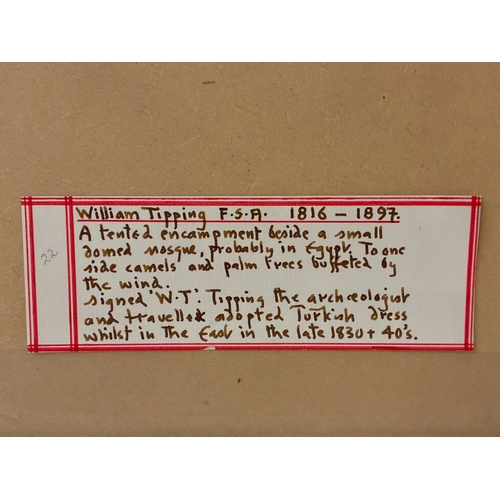 William Tipping F.S.A. 1816 - 1897.
A tented encampment beside a small
domed mosque, probably in Egypt. To one
side camels and palm trees buffeted by
the wind.
signed 'W.T'. Tipping the archæologist
and traveller adopted Turkish dress
whilst in the East in the late 1830 + 40's.
22